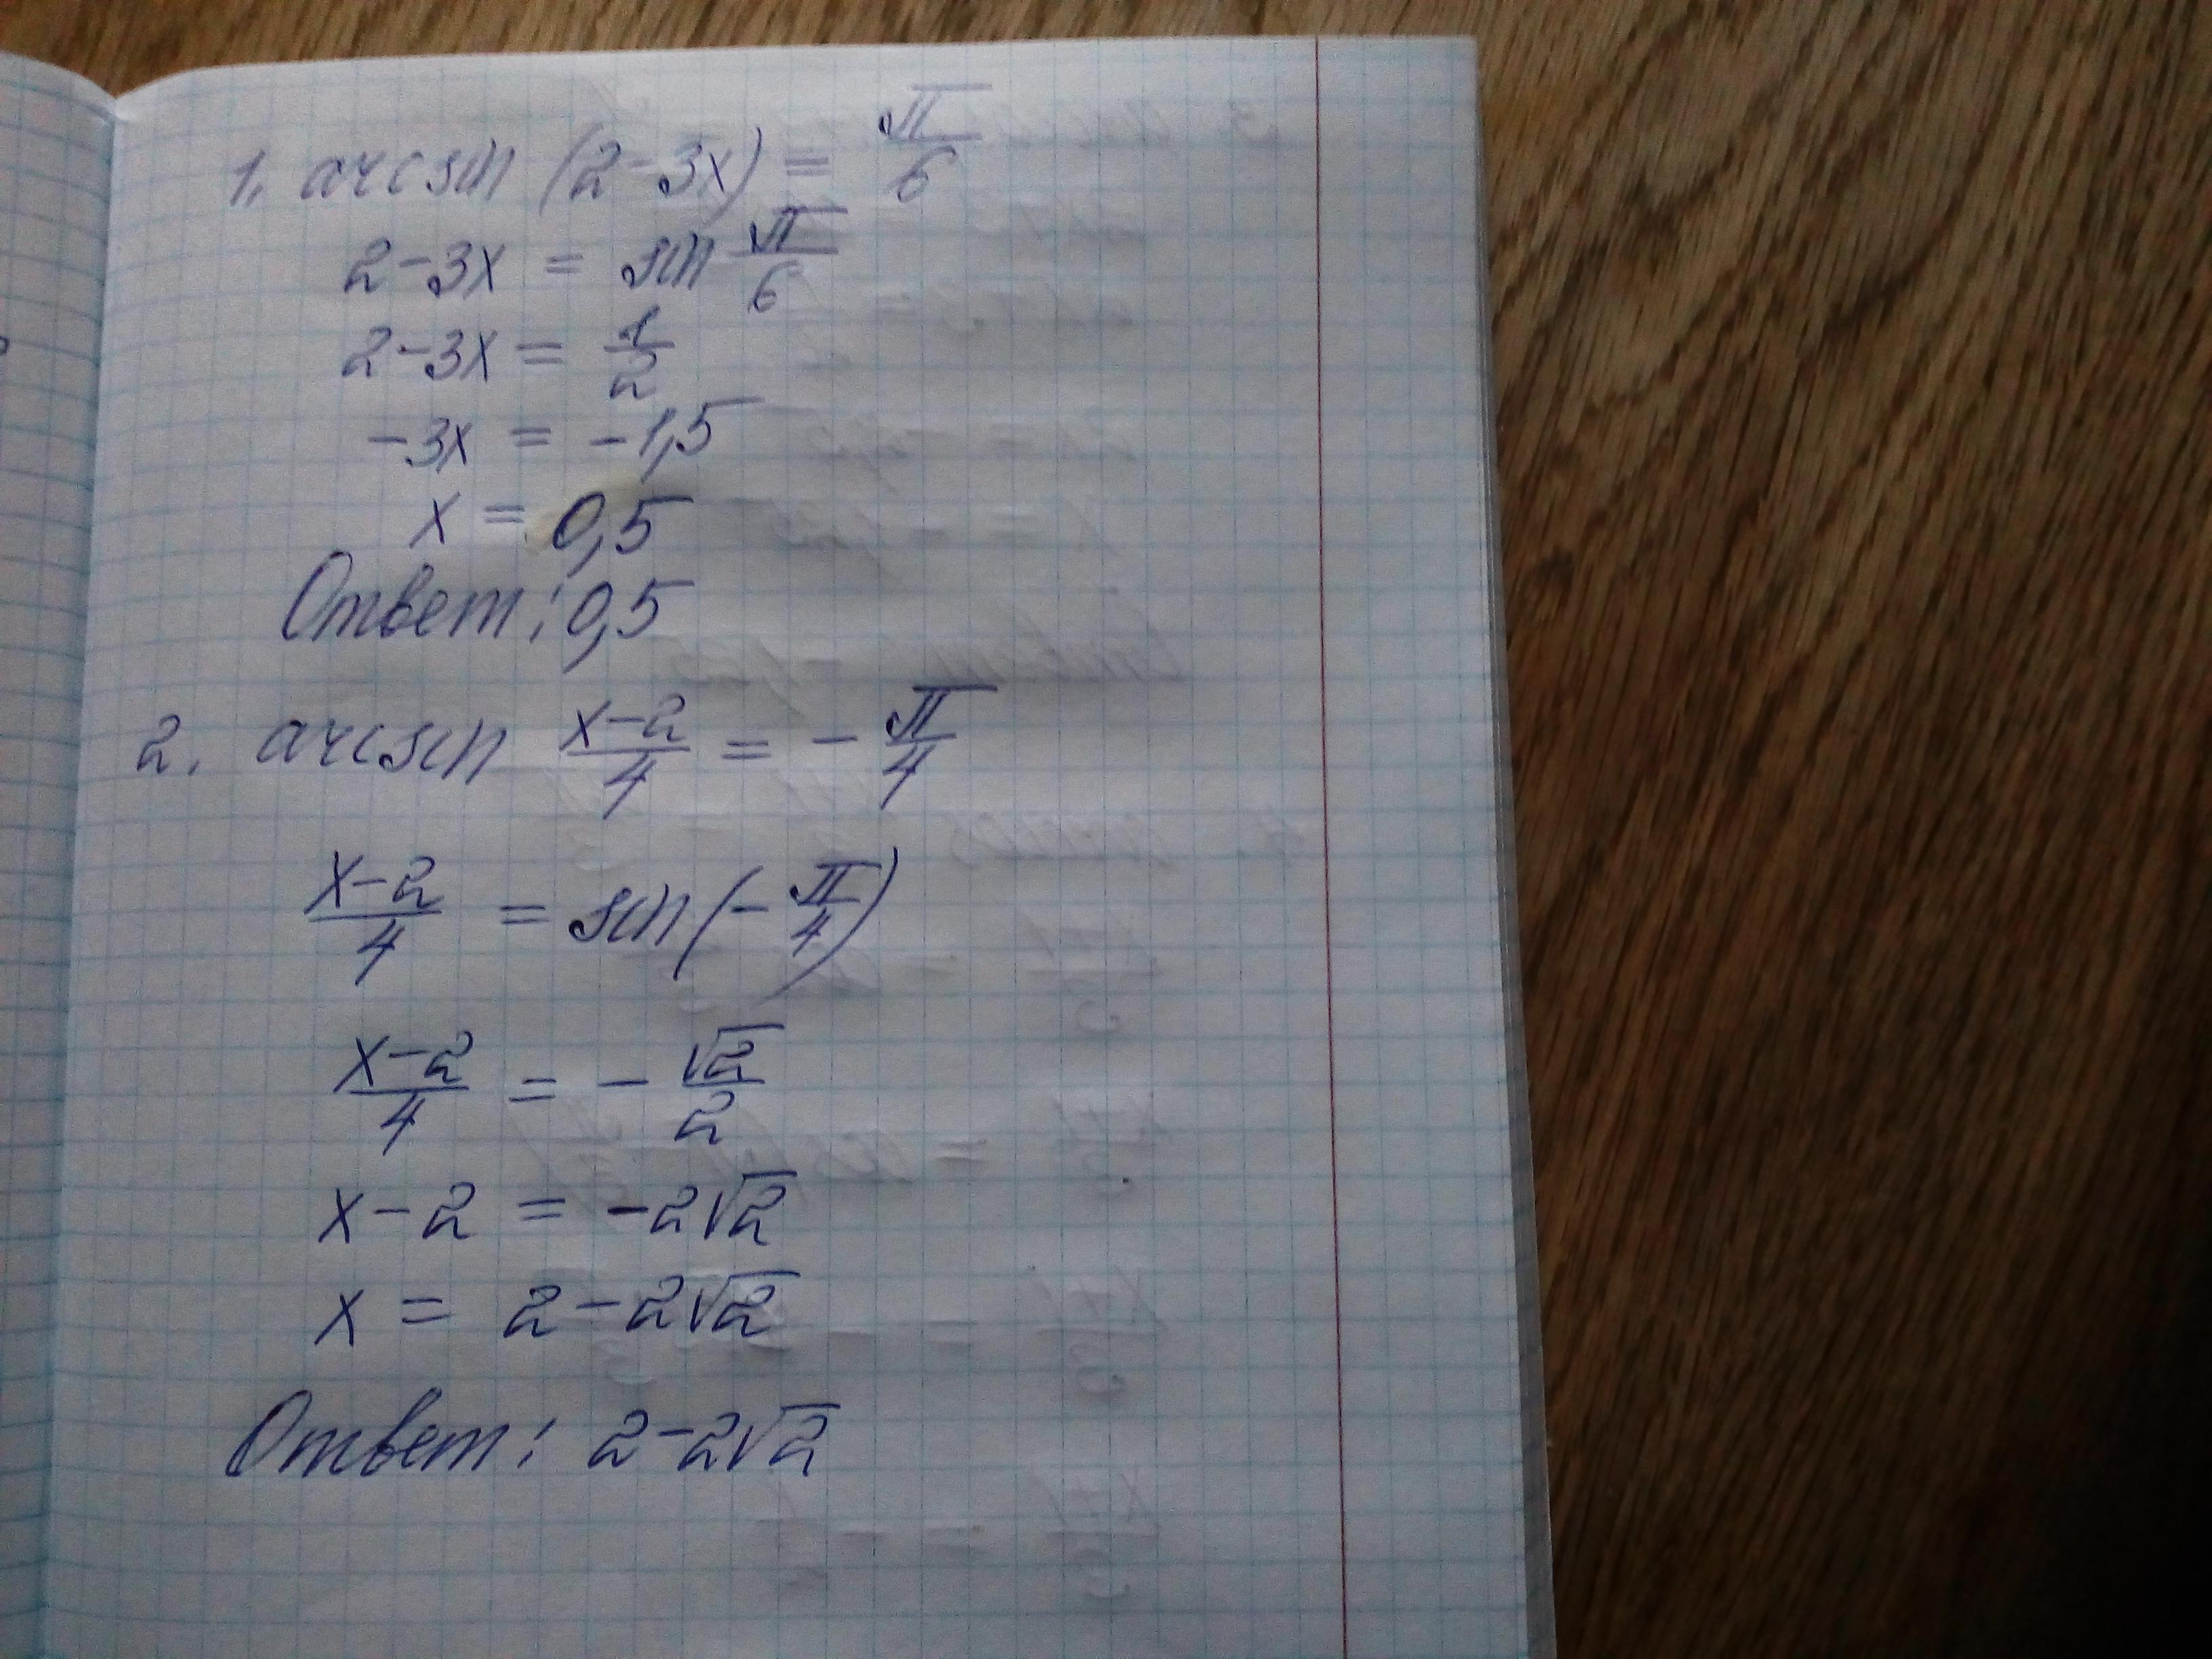 1. arcsin (2-3x) = π/6
2-3x = sin π/6
2-3x = 1/2
-3x = -1,5
x = 0,5
Ответ: 0,5
2. arcsin (x-2)/4 = - π/4
(x-2)/4 = sin(- π/4)
(x-2)/4 = - √2/2
x-2 = -2√2
x = 2-2√2
Ответ: 2-2√2